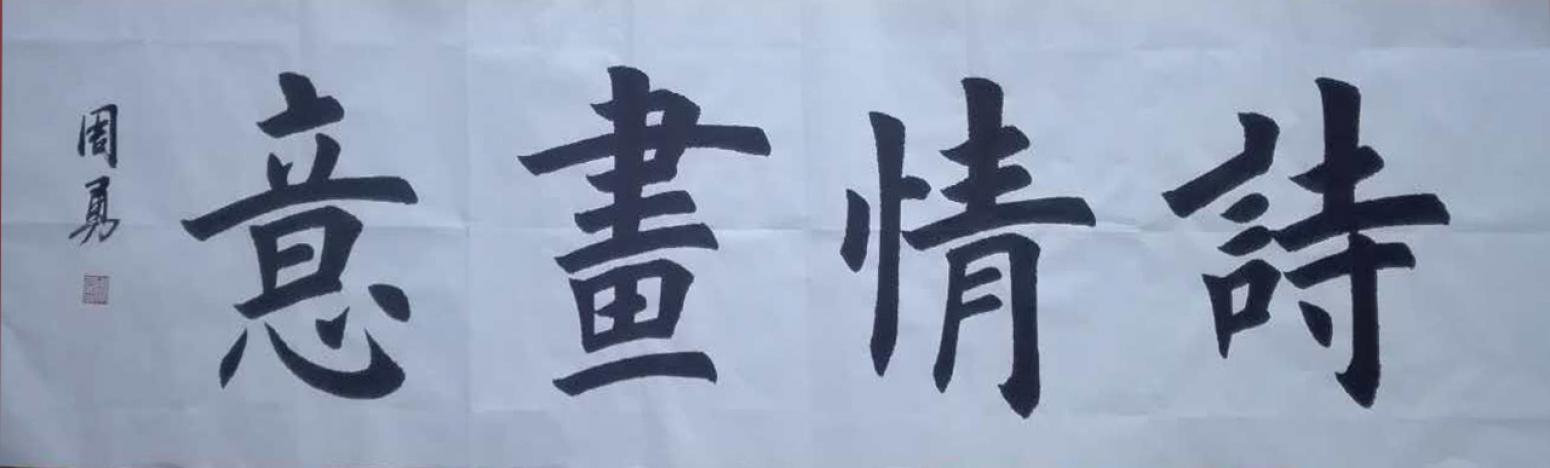 詩情畫意
周勇